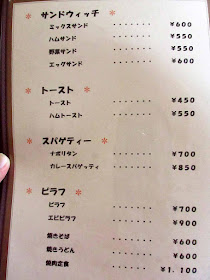 サンドウィッチ
ミックスサンド ・・・・・・・ ¥600
ハムサンド ・・・・・・・ ¥550
野菜サンド ・・・・・・・ ¥550
エッグサンド ・・・・・・・ ¥600
トースト
トースト ・・・・・・・ ¥450
ハムトースト ・・・・・・・ ¥550
スパゲティー
ナポリタン ・・・・・・・ ¥700
カレースパゲッティ ・・・・・・・ ¥850
ピラフ
ピラフ ・・・・・・・ ¥700
エビピラフ ・・・・・・・ ¥900
焼きそば ・・・・・・・ ¥600
焼きうどん ・・・・・・・ ¥600
焼肉定食 ・・・・・・・ ¥1.100